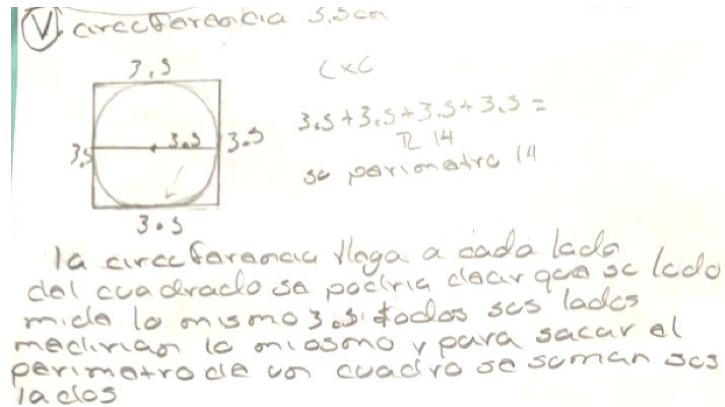 V. circcferencia 3.5cm
3.5
LxL
3.5+3.5+3.5+3.5=
3.5 3.5 3.5
R 14
su perimetro 14
3.5
la circcferencia llega a cada lado
del cuadrado se podria decir que se lado
mide lo mismo 3.5 todos sus lados
medirian lo miosmo y para sacar el
perimetro de un cuadro se suman sus
lados